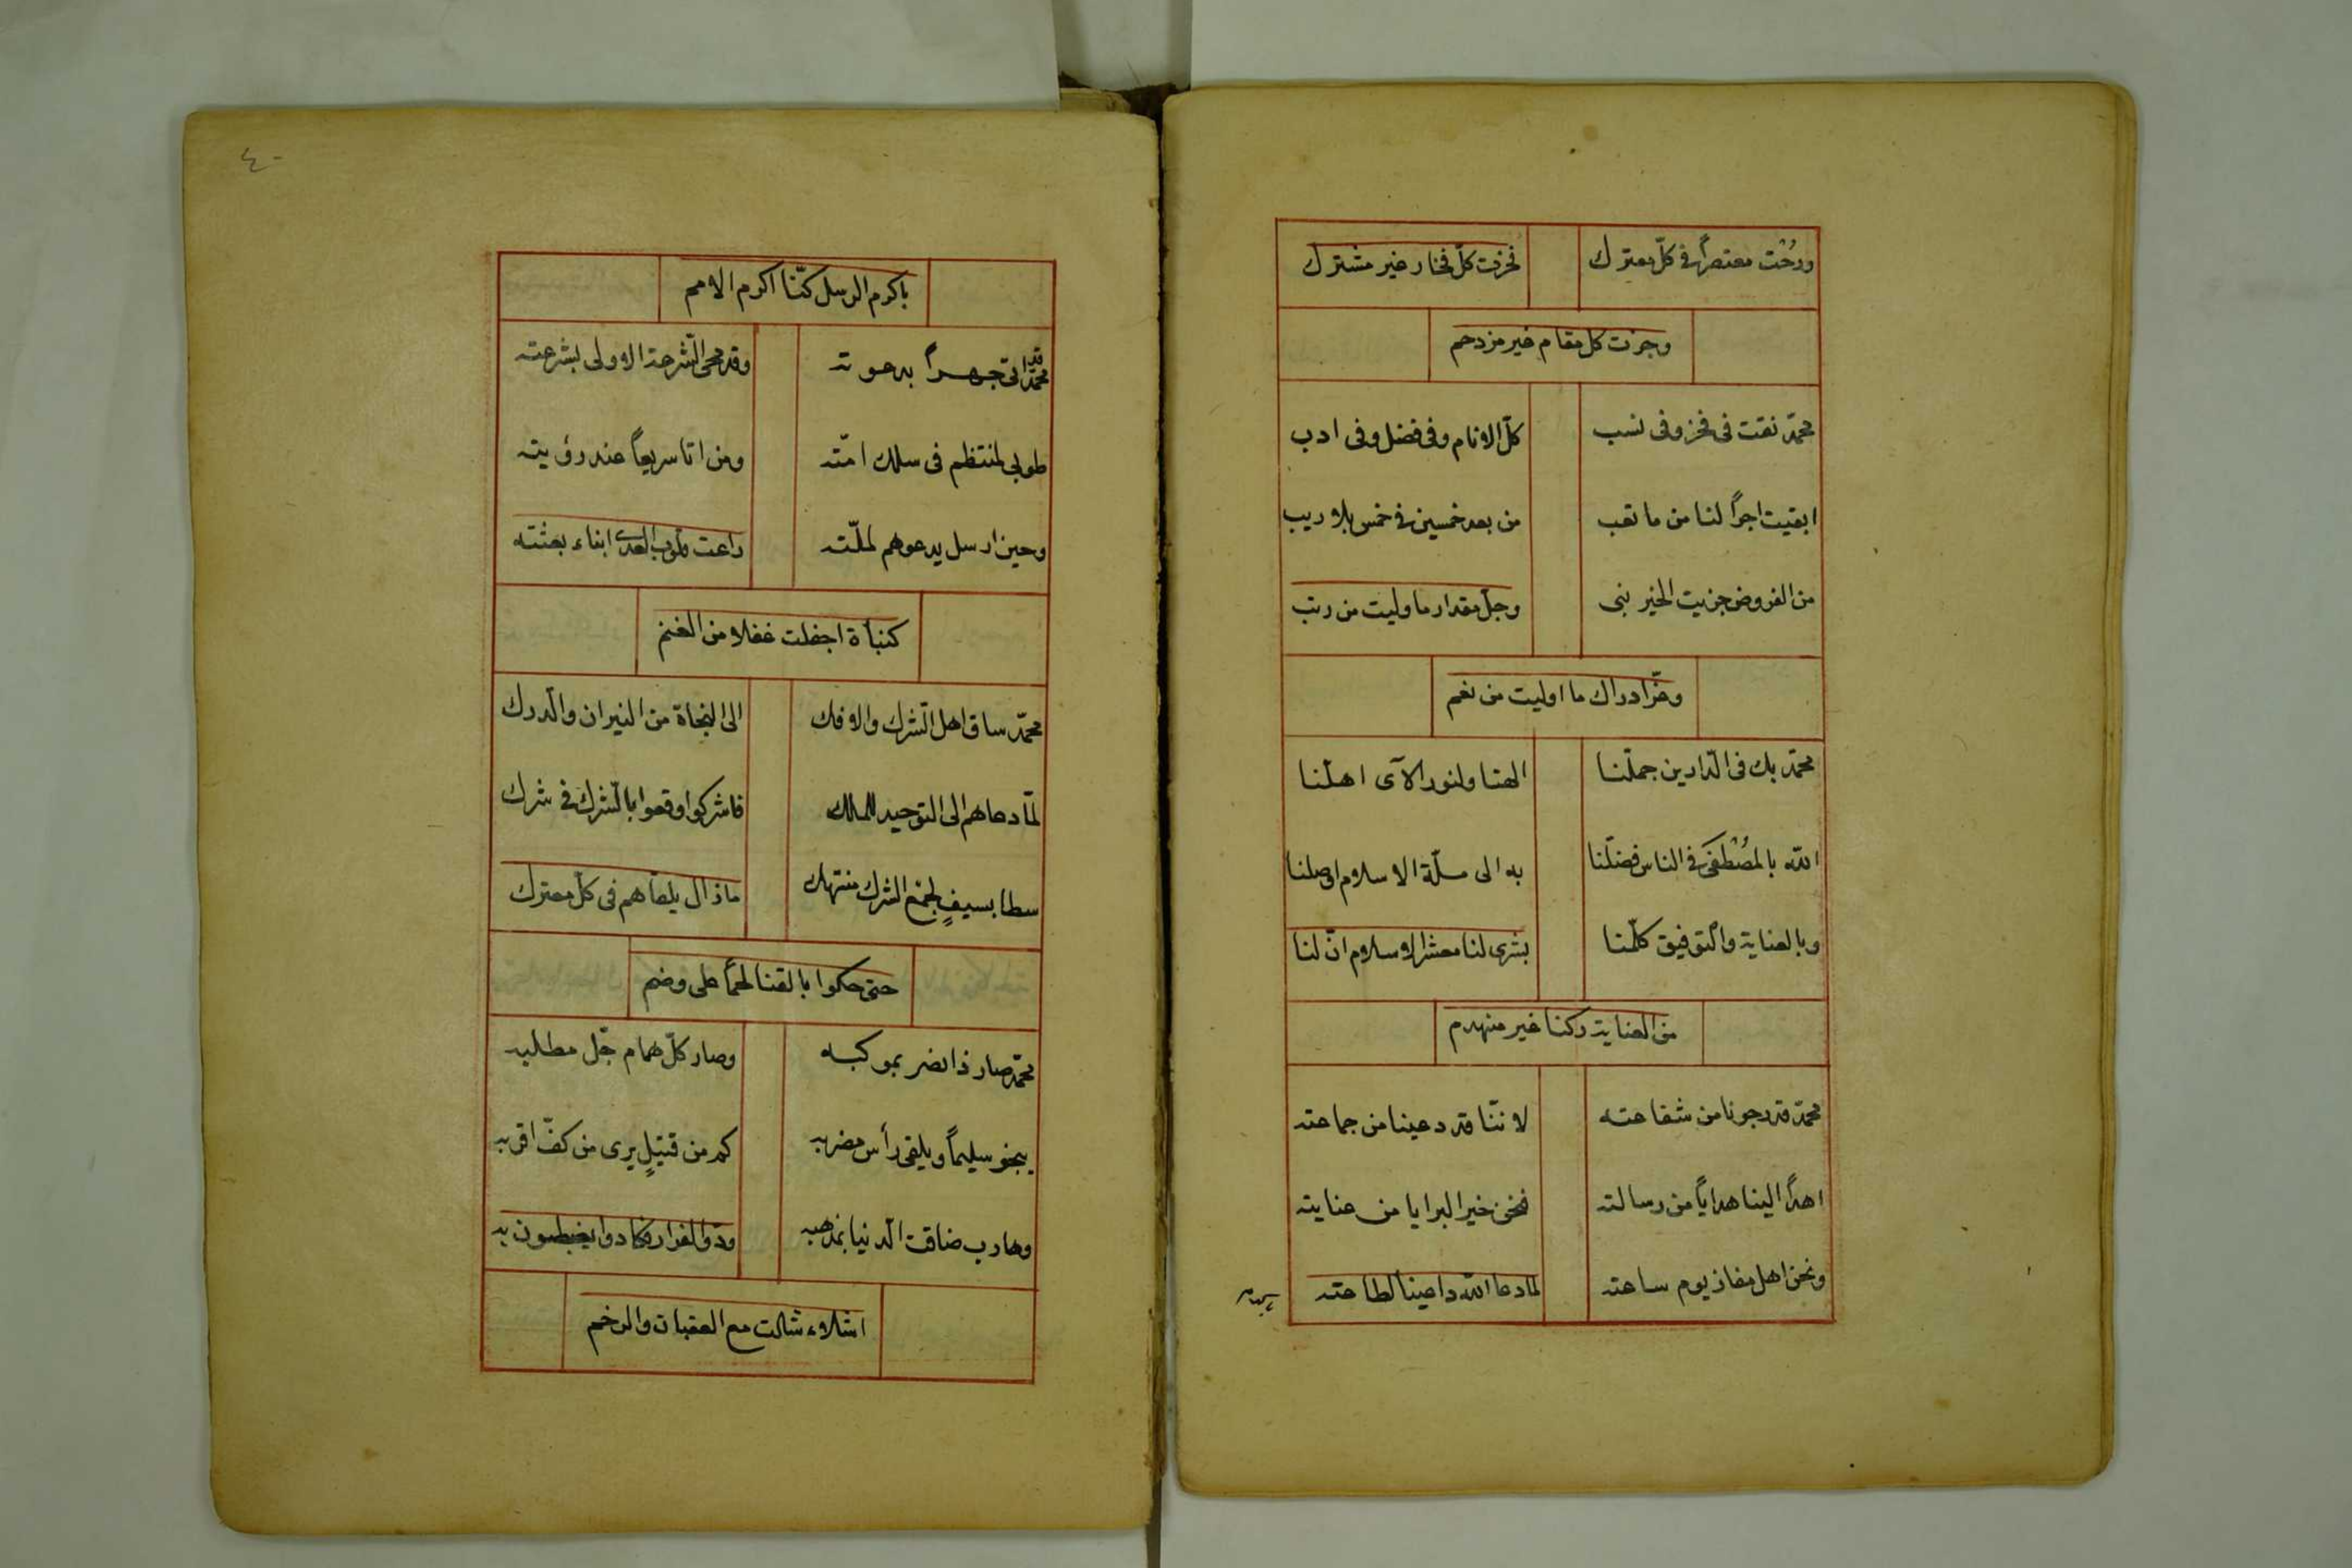 ورحْت معتصراً فى كلّ معترك فحزت كلّ فخار غير مشترك
وجزت كل مقام غير مزدحم
محمّد نقت فى فخر وفى نسب كلّ الانام وفى فضل وفى ادب
ابقيت اجراً لنا من ما تعب من بعد خمسين فى خمس بلا ريب
من الفروض جزيت الخير نبى وجلّ مقدار ما وليت من رتب
وعزّ ادراك ما اوليت من نعم
محمّد بك فى الدّارين جملّنا الهنا ولنور الآى اهلّنا
الله بالمصْطفى فى الناس فضلّنا به الى ملّة الاسلام اوصلنا
وبالعناية والتّوفيق كلّمنا بشرى لنا معشر الاسلام انّ لنا
من العناية ركنا غير منهدم
محمّد قد رجونا من شفاعته لاننّا قد دعينا من جماعته
اهداً الينا هداياً من رسالته فنحن خير البرايا من عنايته
ونحن اهل مفاز يوم ساعته لما دعا الله داعينا لطاعته
٤٠
باكرم الرسل كنّا اكرم الامم
محمّد قد اتى جهراً بدعوته وقد محى الشّرعة الاولى بشرعته
طوبى لمنتظم فى سلك امّته ومن اتا سريعاً عند رؤيته
وحين ارسل يدعوهم لملّته راعت قلوب العدى ابناء بعثته
كنبأة اجفلت غفلا من الغنم
محمّد ساق اهل الشّرك والافك الى النجاة من النيران والدّرك
لمّا دعاهم الى التوحيد للملك فاشركوا وقعوا بالشّرك فى شرك
سطا بسيفٍ لجمْع الشرك منتهك مازال يلقاهم فى كلّ معترك
حتى حكوا بالقنا لحماً على وضم
محمّد صار ذا نصر بموكبه وصار كلّ همام جّل مطلبه
ينجو سليماً ويلقى رأس مضربه كم من قتيلٍ يرى من كفّ اقربه
وهارب ضاقت الدّنيا بمذهبه ودّوا الفرار فكادوا يغبطون به
اشلاء شالت مع العقبان والرخم